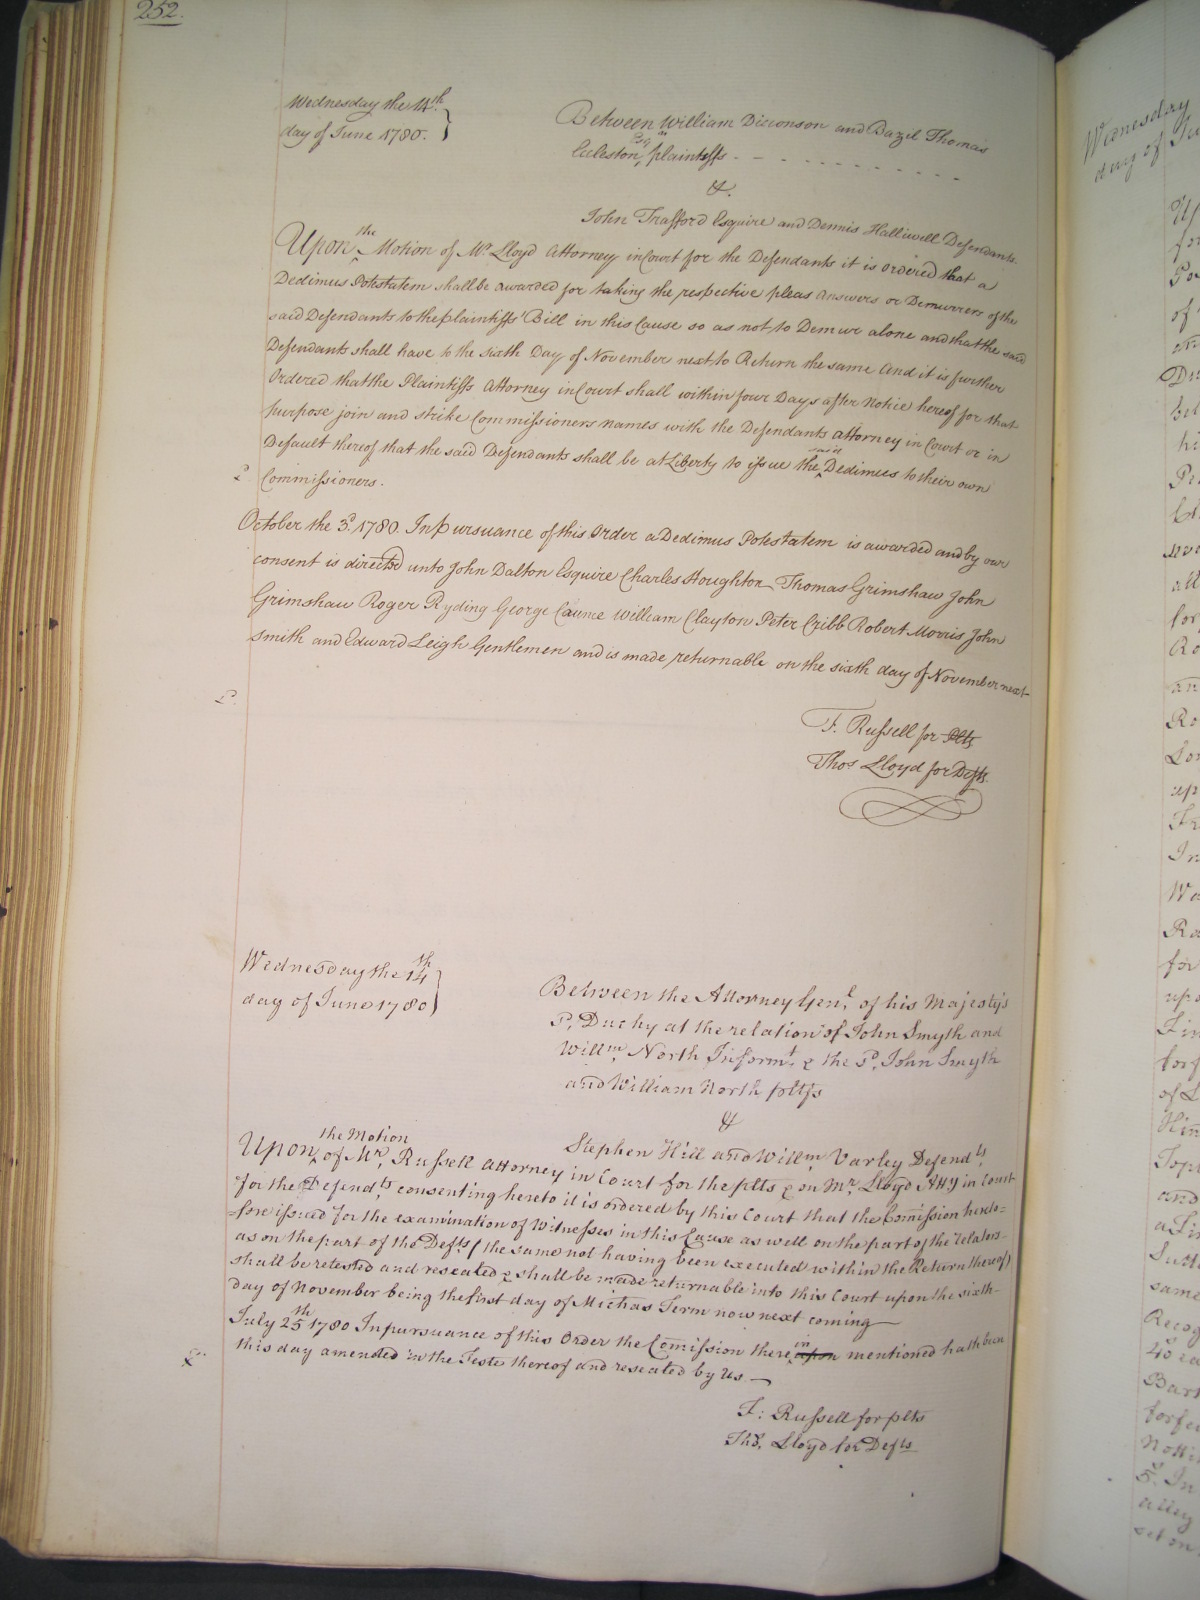 252.
Wednesday the 14th
day of June 1780.
Between William Dicconson and Bazil Thomas
Eccleston Esqrs plaintiffs
&.
John Trafford Esquire and Dennis Halliwell Defendants
Upon the Motion of Mr. Lloyd Attorney in Court for the Defendants it is ordered that a
Dedimus Potestatem shall be awarded for taking the respective pleas answers or Demurrers of the
said Defendants to the plaintiffs' Bill in this Cause so as not to Demur alone and that the said
Defendants shall have to the sixth Day of November next to Return the same And it is further
Ordered that the Plaintiffs Attorney in Court shall within four Days after Notice hereof for that
purpose join and strike Commissioners names with the Defendants attorney in Court or in
Default thereof that the said Defendants shall be at Liberty to issue the said Dedimus to their own
Commissioners.
October the 3d. 1780. In pursuance of this Order a Dedimus Potestatem is awarded and by our
consent is directed unto John Dalton Esquire Charles Houghton Thomas Grimshaw John
Grimshaw Roger Ryding George Caunce William Clayton Peter Cribb Robert Morris John
Smith and Edward Leigh Gentlemen and is made returnable on the sixth day of November next
F. Russell for Plts
Thos Lloyd for Defts.
Wednesday the 14th
day of June 1780
Between the Attorney Genl. of his Majesty's
sd. Duchy at the relation of John Smyth and
Willm. North Informt. & the sd. John Smyth
and William North pltfs
&
Stephen Hill and Willm. Varley Defendts.
Upon the Motion of Mr. Russell Attorney in Court for the plts & on Mr. Lloyd Atty in Court
for the Defendts. consenting hereto it is ordered by this Court that the Comission hereto=
=fore issued for the examination of Witnesses in this Cause as well on the part of the relators
as on the part of the Defts. (the same not having been executed within the Return thereof)
shall be retested and resealed & shall be made returnable into this Court upon the sixth
day of November being the first day of Michas Term now next coming
July 25th 1780 In pursuance of this Order the Comission therein upon mentioned hath been
this day amended in the Teste thereof and resealed by Us
F: Russell for plts
Thos. Lloyd for Defts